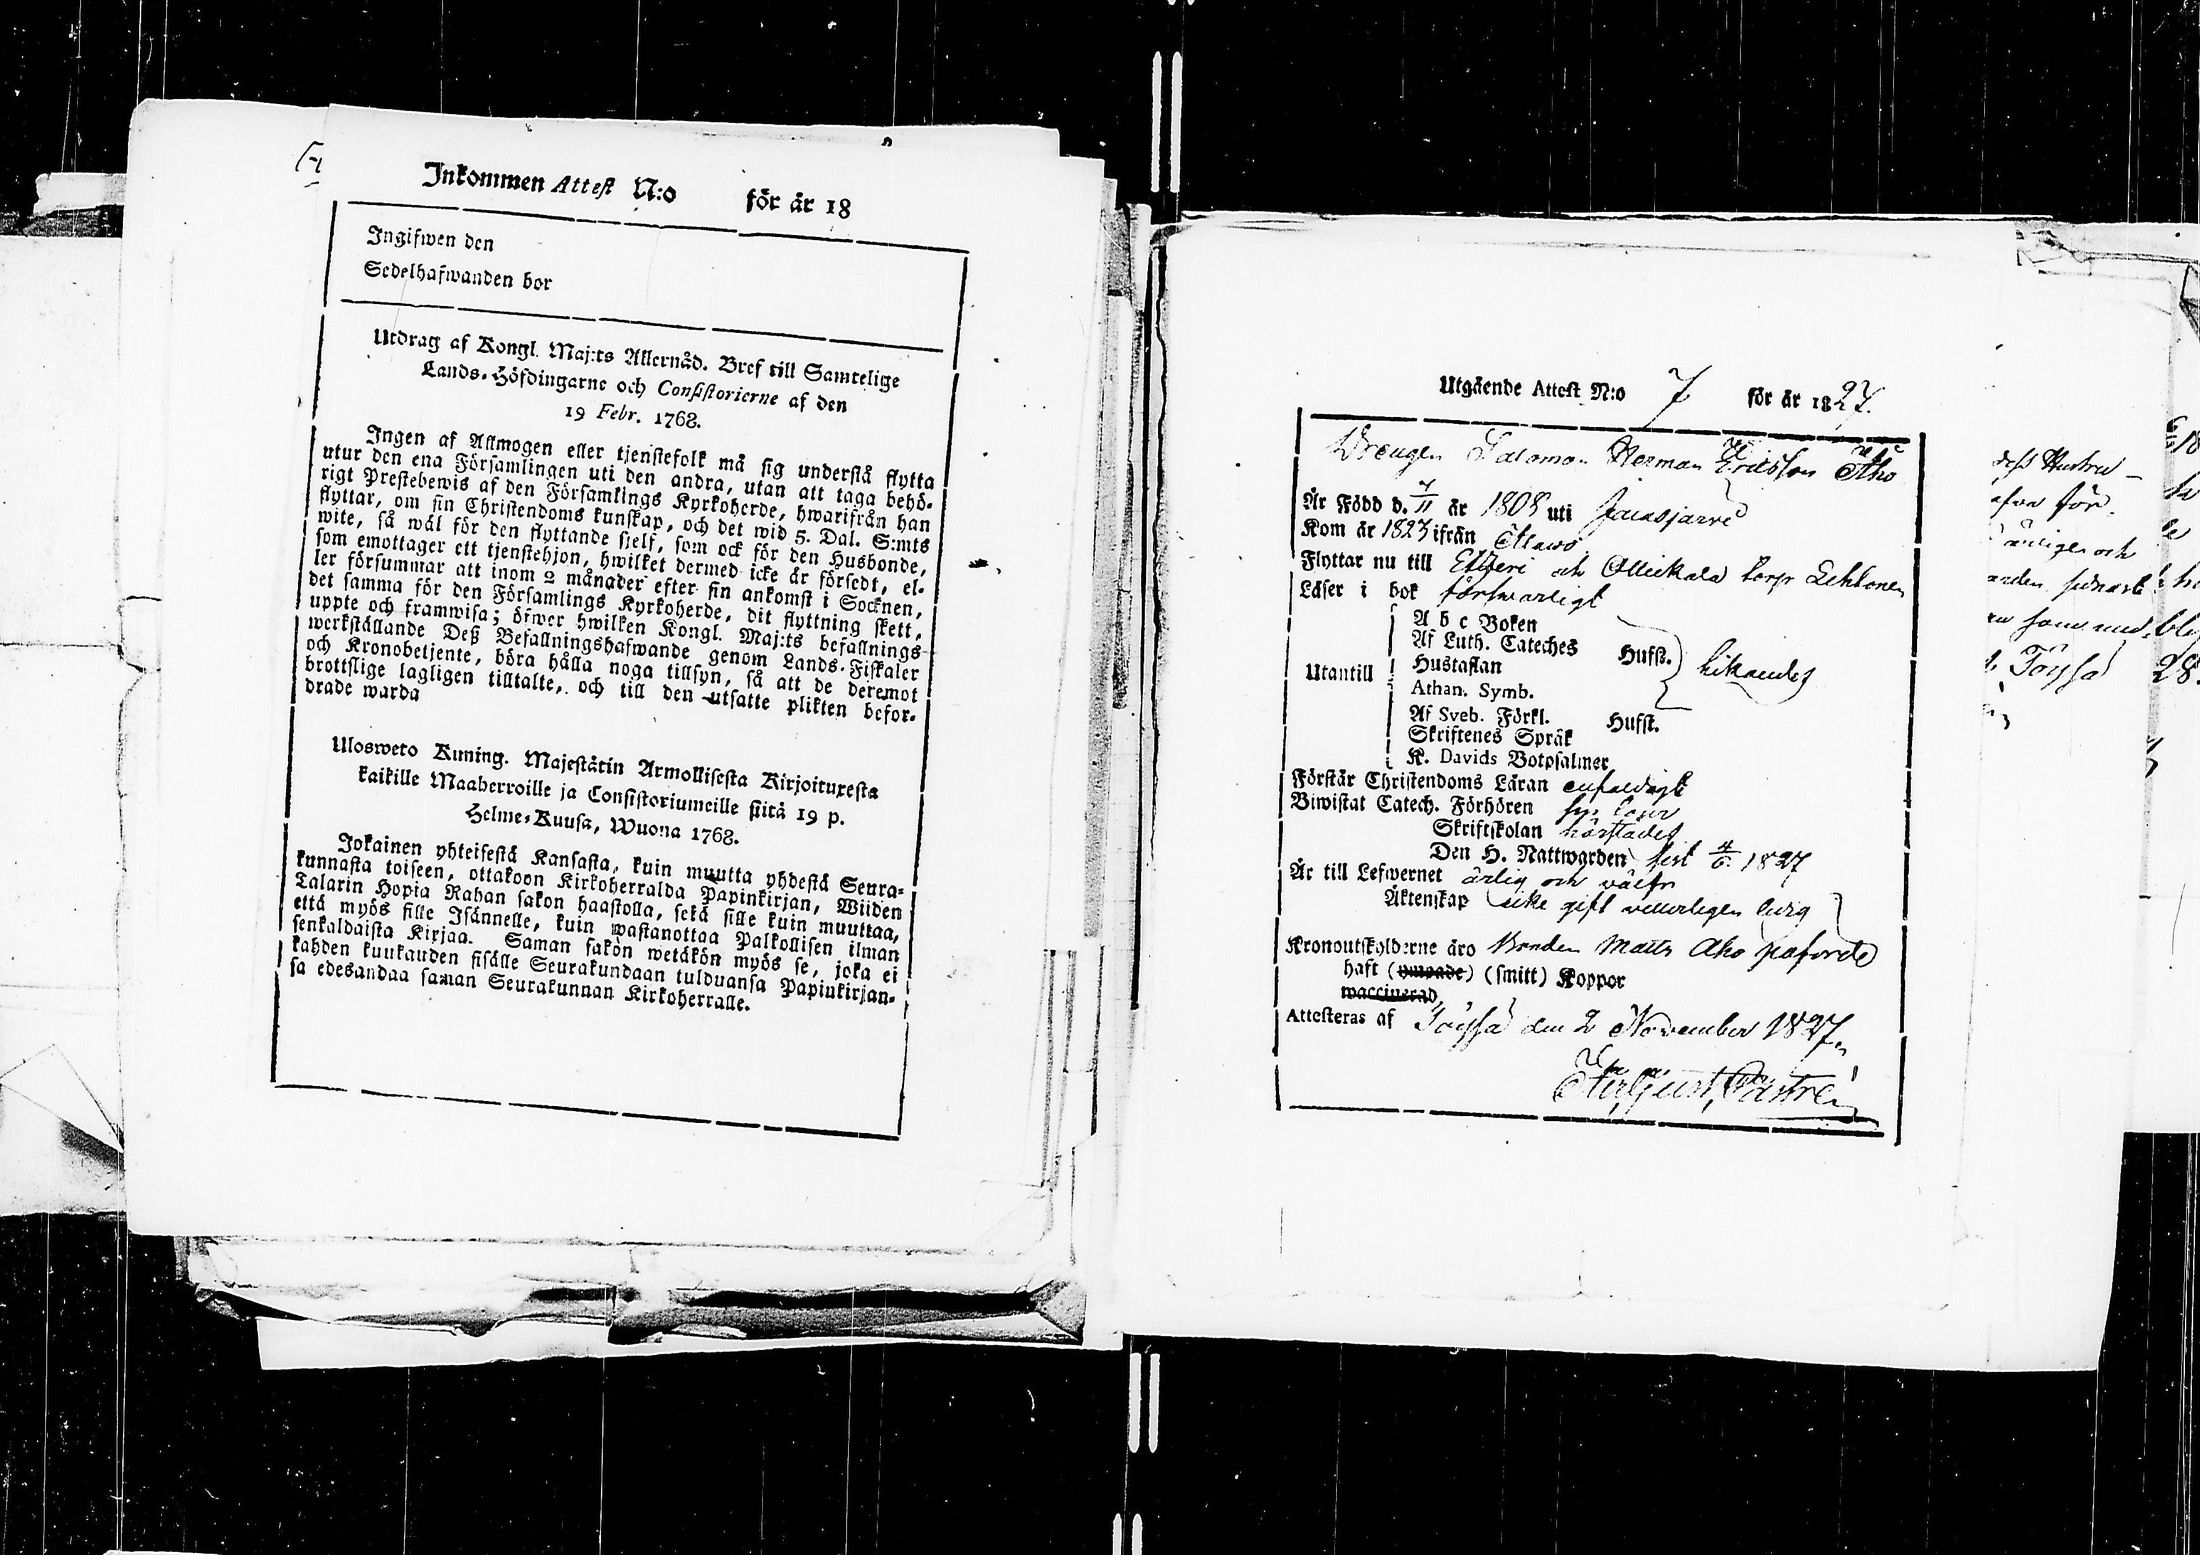 Inkommen Attest N:o för år 18
Ingifwen den
Sedelhafwanden bor
Utdrag af Kongl. Maj:ts Allernåd. Bref till Samtelige
Lands-Höfdingarne och Consistorierne af den
19 Febr. 1768.
Ingen af Allmogen eller tjenstefolk må sig understå flytta
utur den ena Församlingen uti den andra, utan att taga behö-
rigt Prestebewis af den Församlings Kyrkoherde, hwarifrån han
flyttar, om sin Christendoms kunskap, och det wid 5. Dal. S:mts
wite, så wäl för den flyttande sjelf, som ock för den Husbonde,
som emottager ett tjenstehjon, hwilket dermed icke är försedt, el-
ler försummar att inom 2 månader efter sin ankomst i Socknen,
det samma för den Församlings Kyrkoherde, dit flyttning skett,
uppte och framwisa; öfwer hwilken Kongl. Maj:ts befallnings
werkställande Deß Befallningshafwande genom Lands-Fiskaler
och Kronobetjente, böra hålla noga tillsyn, så att de deremot
brottslige lagligen tilltalte, och till den utsatte plikten befor-
drade warda
Ulosweto Kuning. Majestätin Armollisesta Kirjoituxesta
kaikille Maaherroille ja Consistoriumeille siitä 19 p.
Helme-Kuusa, Wuona 1768.
Jokainen yhteisestä Kansasta, kuin muutta yhdestä Seura-
kunnasta toiseen, ottakoon Kirkoherralda Papinkirjan, Wiiden
Talarin Hopia Rahan sakon haastolla, sekä sille kuin muuttaa,
että myös sille Isännelle, kuin wastanottaa Palkollisen ilman
senkaldaista Kirjaa. Saman sakön wetäkön myös se, joka ei
kahden kuukauden sisälle Seurakundaan tulduansa Papinkirjan-
sa edesandaa saman Seurakunnan Kirkoherralle.
Utgående Attest N:o 7 för år 1827.
Drengen Salomon Herman Ericsson Aho
Är Född d. 11 år 1808 uti
Kom år 1823 ifrån
Flyttar nu till Etzeri och Ollickala torp Lehtonen
Läser i bok förswarligt
A b c Boken
Af Luth. Cateches Hufst.
Utantill Hustaflan
Athan. Symb.
Af Sveb. Förkl. Hufst.
Skriftenes Språk
K. Davids Botpsalmer
Förstår Christendoms Läran enfaldigt
Biwistat Catech. Förhören
Skriftskolan
Den H. Nattwarden sist 1827
Är till Lefwernet ärlig och
Äktenskap icke gift
Kronoutskylderne äro Bonden Matts Aho påförde
haft (ympade) (smitt) Koppor
waccinerad
Attesteras af Töysä den 2 November 1827.
deß Hustru
för
ärlig och
Töysä
28.